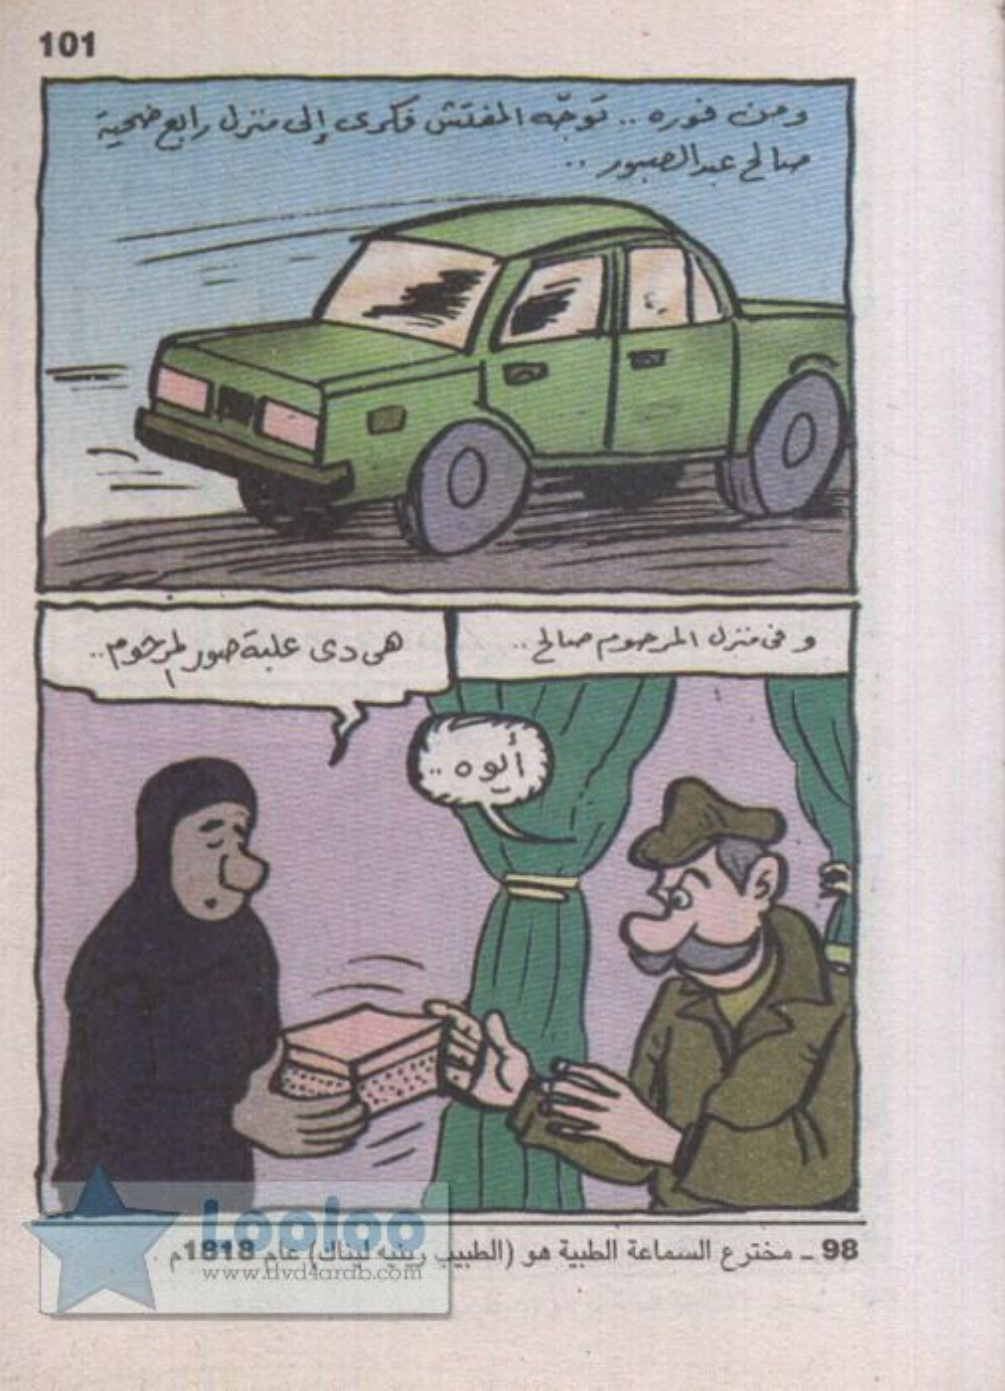 101
ومن فوره .. توجّه المفتش فكرى إلى منزل رابع ضحية
صالح عبدالصبور ..
و فى منزل المرحوم صالح ..
هى دى علبة صور المرحوم ..
أيوه ..
98 ـ مخترع السماعة الطبية هو (الطبيب رينيه ليناك) عام 1818م .
Looloo
www.dvd4arab.com